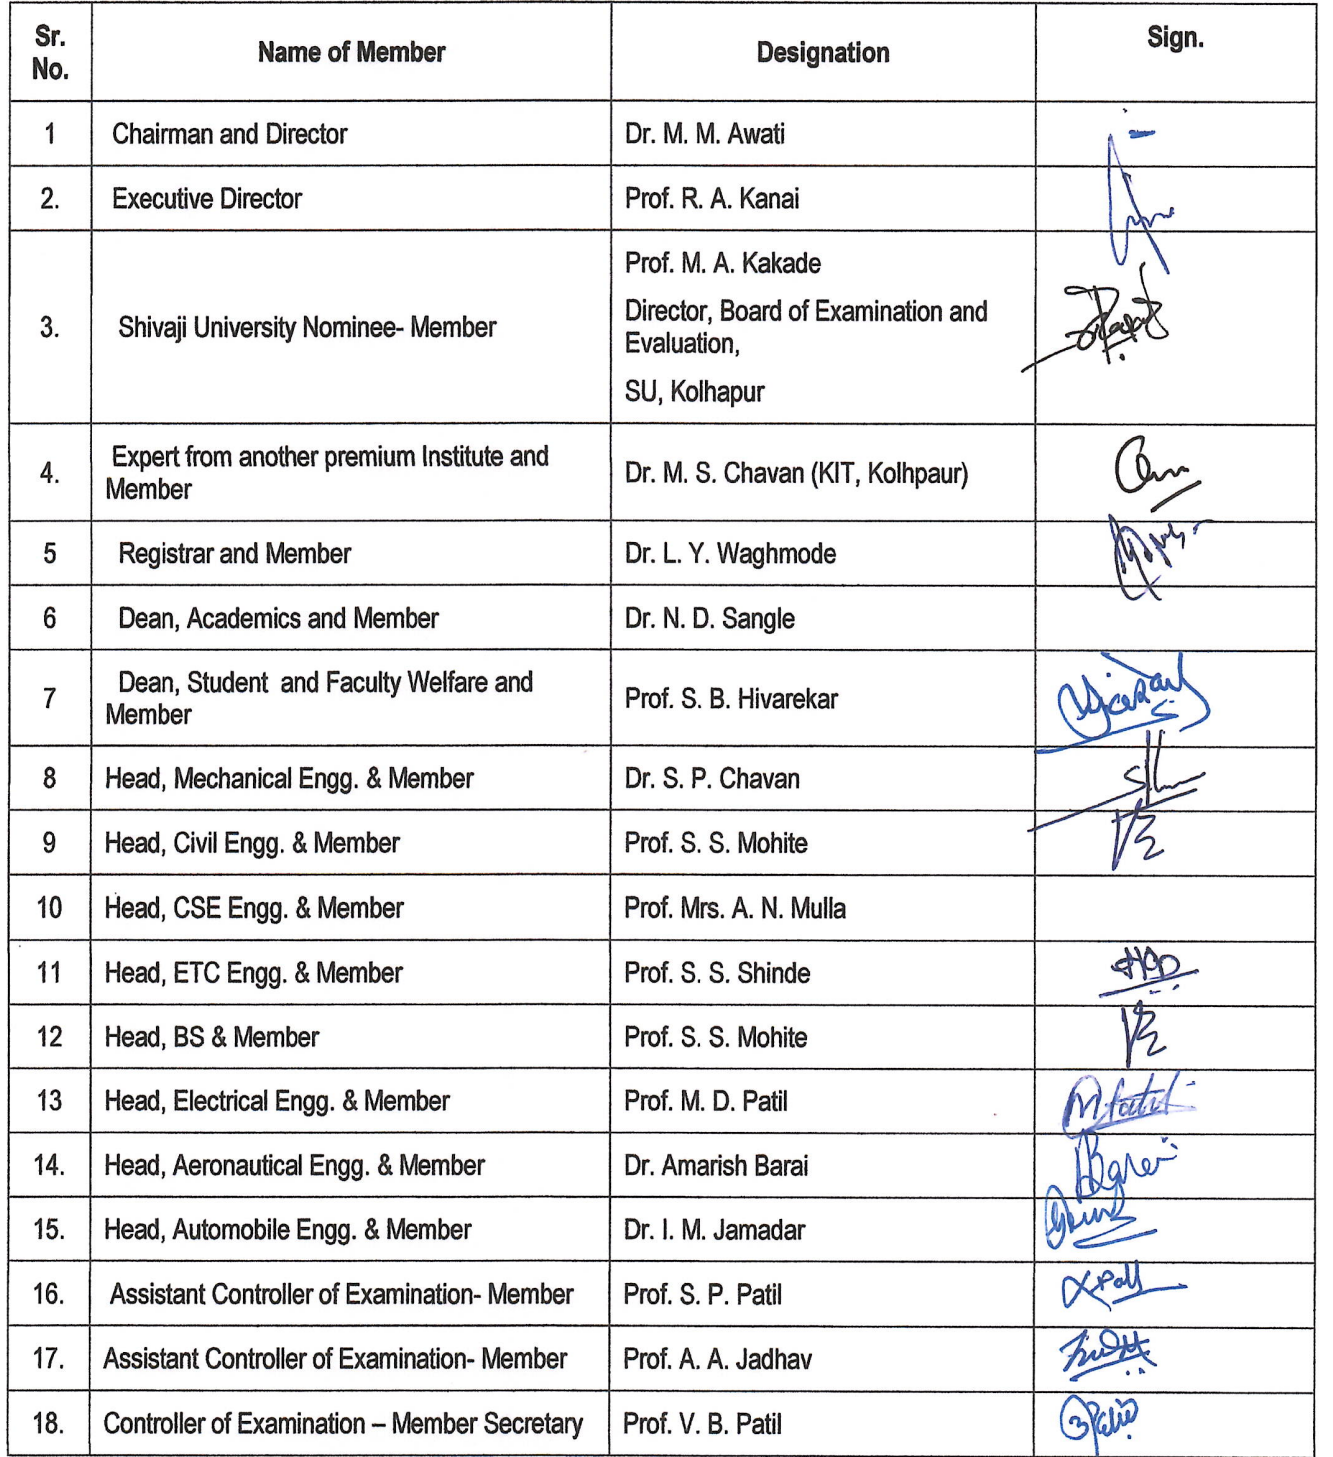 Sr. No. Name of Member Designation Sign.
1 Chairman and Director Dr. M. M. Awati
2. Executive Director Prof. R. A. Kanai
3. Shivaji University Nominee- Member Prof. M. A. Kakade
Director, Board of Examination and
Evaluation,
SU, Kolhapur
4. Expert from another premium Institute and
Member Dr. M. S. Chavan (KIT, Kolhpaur)
5 Registrar and Member Dr. L. Y. Waghmode
6 Dean, Academics and Member Dr. N. D. Sangle
7 Dean, Student and Faculty Welfare and
Member Prof. S. B. Hivarekar
8 Head, Mechanical Engg. & Member Dr. S. P. Chavan
9 Head, Civil Engg. & Member Prof. S. S. Mohite
10 Head, CSE Engg. & Member Prof. Mrs. A. N. Mulla
11 Head, ETC Engg. & Member Prof. S. S. Shinde
12 Head, BS & Member Prof. S. S. Mohite
13 Head, Electrical Engg. & Member Prof. M. D. Patil
14. Head, Aeronautical Engg. & Member Dr. Amarish Barai
15. Head, Automobile Engg. & Member Dr. I. M. Jamadar
16. Assistant Controller of Examination- Member Prof. S. P. Patil
17. Assistant Controller of Examination- Member Prof. A. A. Jadhav
18. Controller of Examination – Member Secretary Prof. V. B. Patil